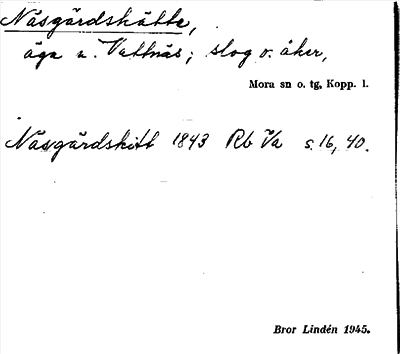 Näsgårdskätte,
äga n. Vattnäs; slog o. åker,
Mora sn o. tg, Kopp. l.
Näsgårdskitt 1843 Rb Va s. 16, 40.
Bror Lindén 1945.